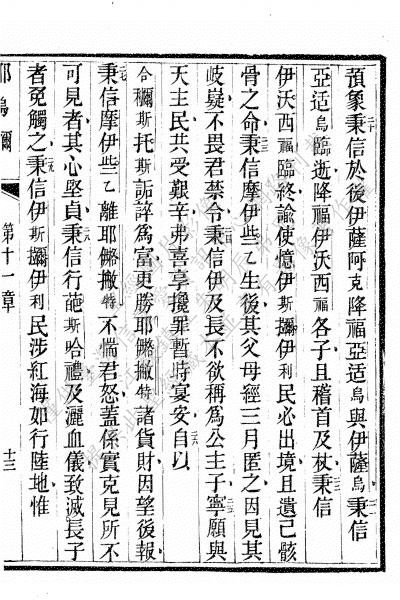 預象秉信於後伊薩阿克降福亞适烏與伊薩烏秉信
亞适烏臨逝降福伊沃西福各子且稽首及杖秉信
伊沃西福臨終諭使憶伊斯攦伊利民必出境且遺己骸
骨之命秉信摩伊些乙生後其父母徑三月匿之因見其
岐嶷不畏君禁令秉信伊及長不欲稱為公主子寧願與
天主民共受艱辛弗喜享攙罪暫時宴安自以
合斯托斯詬誶為富更勝耶撇特諸貨財因望後報
秉信摩伊些乙離耶撇特不惴君怒蓋係實克見所不
可見者其心堅貞秉信行葩斯哈禮及灑血儀致滅長子
者免觸之秉信伊斯攦伊利民涉紅海如行陸地惟
第十一章
十三